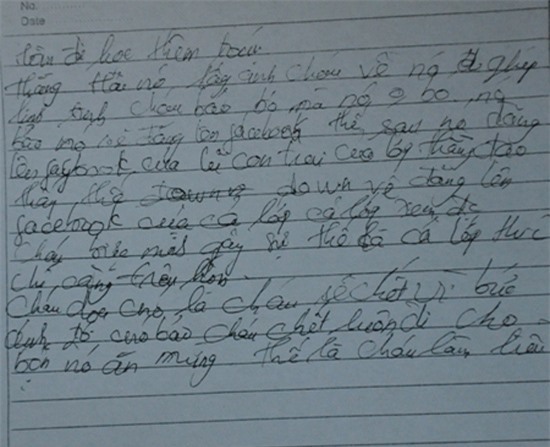 No.
Date
hôm đi học thêm toán
thằng Hải nó, lấy ảnh cháu về nó, ghép
linh tinh cháu bảo bỏ mà nó 0 bỏ, nó
bảo mọ sẽ đăng lên facebook thế, sau nó đăng
lên facebook của cả con trai của lớp thằng tạo
thấy, thế down về đăng lên
facebook của cả lớp cả lớp xem, đc
cháu mới gây sự thế là cả lớp thức
chỉ, càng trêu hơn.
Cháu dọa cho, là cháu sẽ chết vì bức
ảnh đó, cứ bảo cháu chết luôn đi cho
bọn nó ăn mừng thế là cháu làm liều